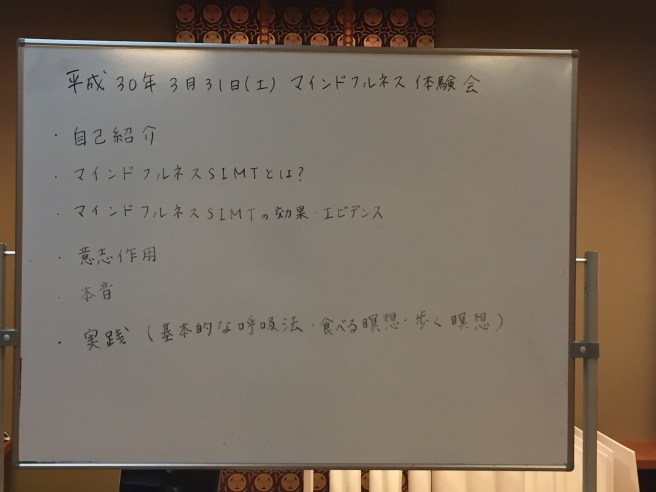 平成30年3月31日(土) マインドフルネス体験会
・自己紹介
・マインドフルネスSIMTとは?
・マインドフルネスSIMTの効果・エビデンス
・意志作用
・本音
・実践(基本的な呼吸法・食べる瞑想・歩く瞑想)